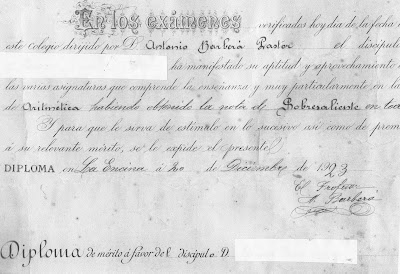 En los exámenes verificados hoy día de la fecha e
este Colegio dirigido por D. Antonio Barberá Pastor el discípulo
ha manifestado su aptitud y aprovechamiento e
las varias asignaturas que comprende la enseñanza y muy particularmente en la
de Aritmética habiendo obtenido la nota de Sobresaliente en to
Y para que le sirva de estímulo en lo sucesivo así como de prem
á su relevante mérito, se le expide el presente
DIPLOMA en La Encina á 20 de Diciembre de 1923
El Profesor
A. Barberá
Diploma de mérito á favor del discípulo D.